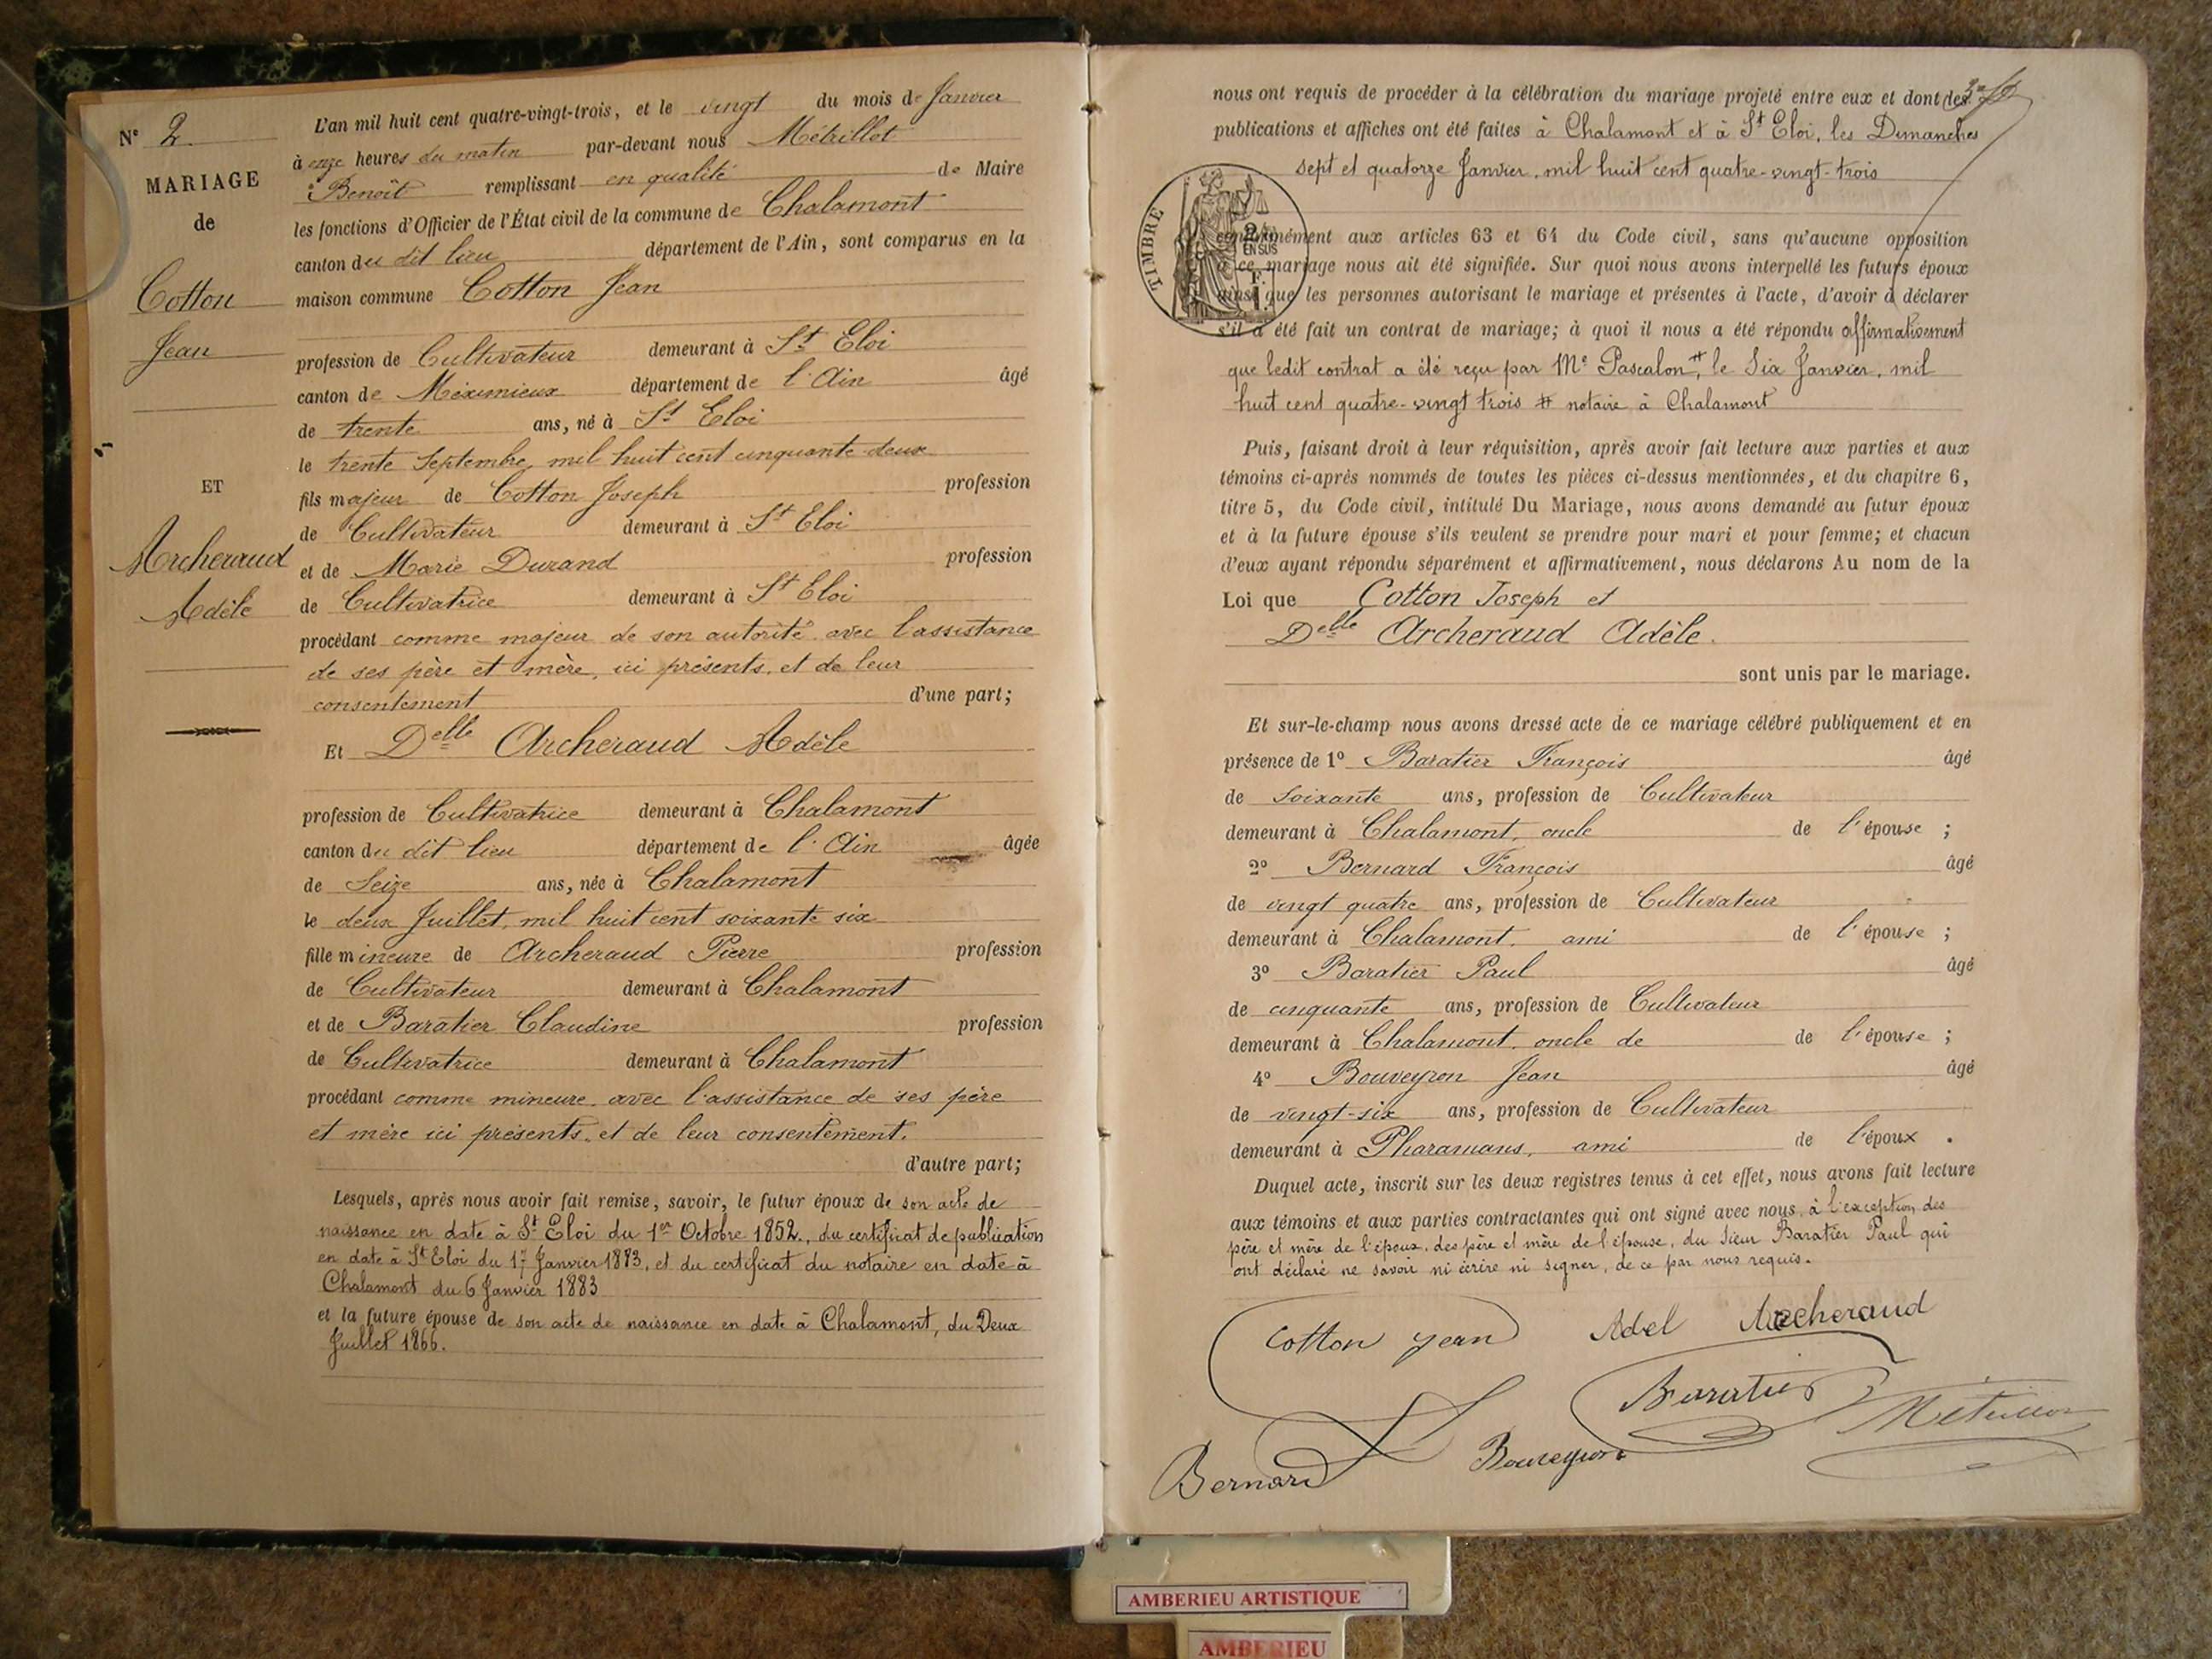 N° 2.
MARIAGE
de
Cotton
Jean
ET
Archeraud
Adèle
L'an mil huit cent quatre-vingt-trois, et le vingt du mois de Janvier
à onze heures du matin par-devant nous Métrillot
Benoît remplissant en qualité de Maire
les fonctions d'Officier de l'État civil de la commune de Chalamont
canton du dit lieu département de l'Ain, sont comparus en la
maison commune Cotton Jean
profession de Cultivateur demeurant à St Eloi
canton de Méximieux département de l'Ain âgé
de trente ans, né à St Eloi
le trente Septembre, mil huit cent cinquante-deux
fils majeur de Cotton Joseph profession
de Cultivateur demeurant à St Eloi
et de Marie Durand profession
de Cultivatrice demeurant à St Eloi
procédant comme majeur de son autorité avec l'assistance
de ses père et mère, ici présents, et de leur
consentement d'une part;
Et Delle Archeraud Adèle
profession de Cultivatrice demeurant à Chalamont
canton du dit lieu département de l'Ain âgée
de Seize ans, née à Chalamont
le deux Juillet, mil huit cent soixante six
fille mineure de Archeraud Pierre profession
de Cultivateur demeurant à Chalamont
et de Baratier Claudine profession
de Cultivatrice demeurant à Chalamont
procédant comme mineure avec l'assistance de ses père
et mère ici présents, et de leur consentement.
d'autre part;
Lesquels, après nous avoir fait remise, savoir, le futur époux de son acte de
naissance en date à St Eloi du 1er Octobre 1852, du certificat de publication
en date à St Eloi du 17 Janvier 1883, et du certificat du notaire en date à
Chalamont du 6 Janvier 1883
et la future épouse de son acte de naissance en date à Chalamont, du Deux
Juillet 1866.
nous ont requis de procéder à la célébration du mariage projeté entre eux et dont les
publications et affiches ont été faites à Chalamont et à St Eloi, les Dimanches
sept et quatorze Janvier, mil huit cent quatre-vingt-trois
TIMBRE
2/10
EN SUS
1 F.
conformément aux articles 63 et 64 du Code civil, sans qu'aucune opposition
à ce mariage nous ait été signifiée. Sur quoi nous avons interpellé les futurs époux
ainsi que les personnes autorisant le mariage et présentes à l'acte, d'avoir à déclarer
s'il a été fait un contrat de mariage; à quoi il nous a été répondu affirmativement
que ledit contrat a été reçu par Me Pascalon, # le Six Janvier, mil
huit cent quatre-vingt trois # notaire à Chalamont
Puis, faisant droit à leur réquisition, après avoir fait lecture aux parties et aux
témoins ci-après nommés de toutes les pièces ci-dessus mentionnées, et du chapitre 6,
titre 5, du Code civil, intitulé Du Mariage, nous avons demandé au futur époux
et à la future épouse s'ils veulent se prendre pour mari et pour femme; et chacun
d'eux ayant répondu séparément et affirmativement, nous déclarons Au nom de la
Loi que Cotton Joseph et
Delle Archeraud Adèle.
sont unis par le mariage.
Et sur-le-champ nous avons dressé acte de ce mariage célébré publiquement et en
présence de 1° Baratier François âgé
de soixante ans, profession de Cultivateur
demeurant à Chalamont, oncle de l'épouse ;
2° Bernard François âgé
de vingt quatre ans, profession de Cultivateur
demeurant à Chalamont. ami de l'épouse ;
3° Baratier Paul âgé
de cinquante ans, profession de Cultivateur
demeurant à Chalamont, oncle de de l'épouse ;
4° Bouveyron Jean âgé
de vingt-six ans, profession de Cultivateur
demeurant à Pharamans, ami de l'époux .
Duquel acte, inscrit sur les deux registres tenus à cet effet, nous avons fait lecture
aux témoins et aux parties contractantes qui ont signé avec nous, à l'exception des
père et mère de l'époux, des père et mère de l'épouse, du Sieur Baratier Paul qui
ont déclaré ne savoir ni écrire ni signer, de ce par nous requis.
Cotton Jean Adel Archeraud
Baratier Métrillot
Bernard Bouveyron
AMBERIEU ARTISTIQUE
AMBERIEU